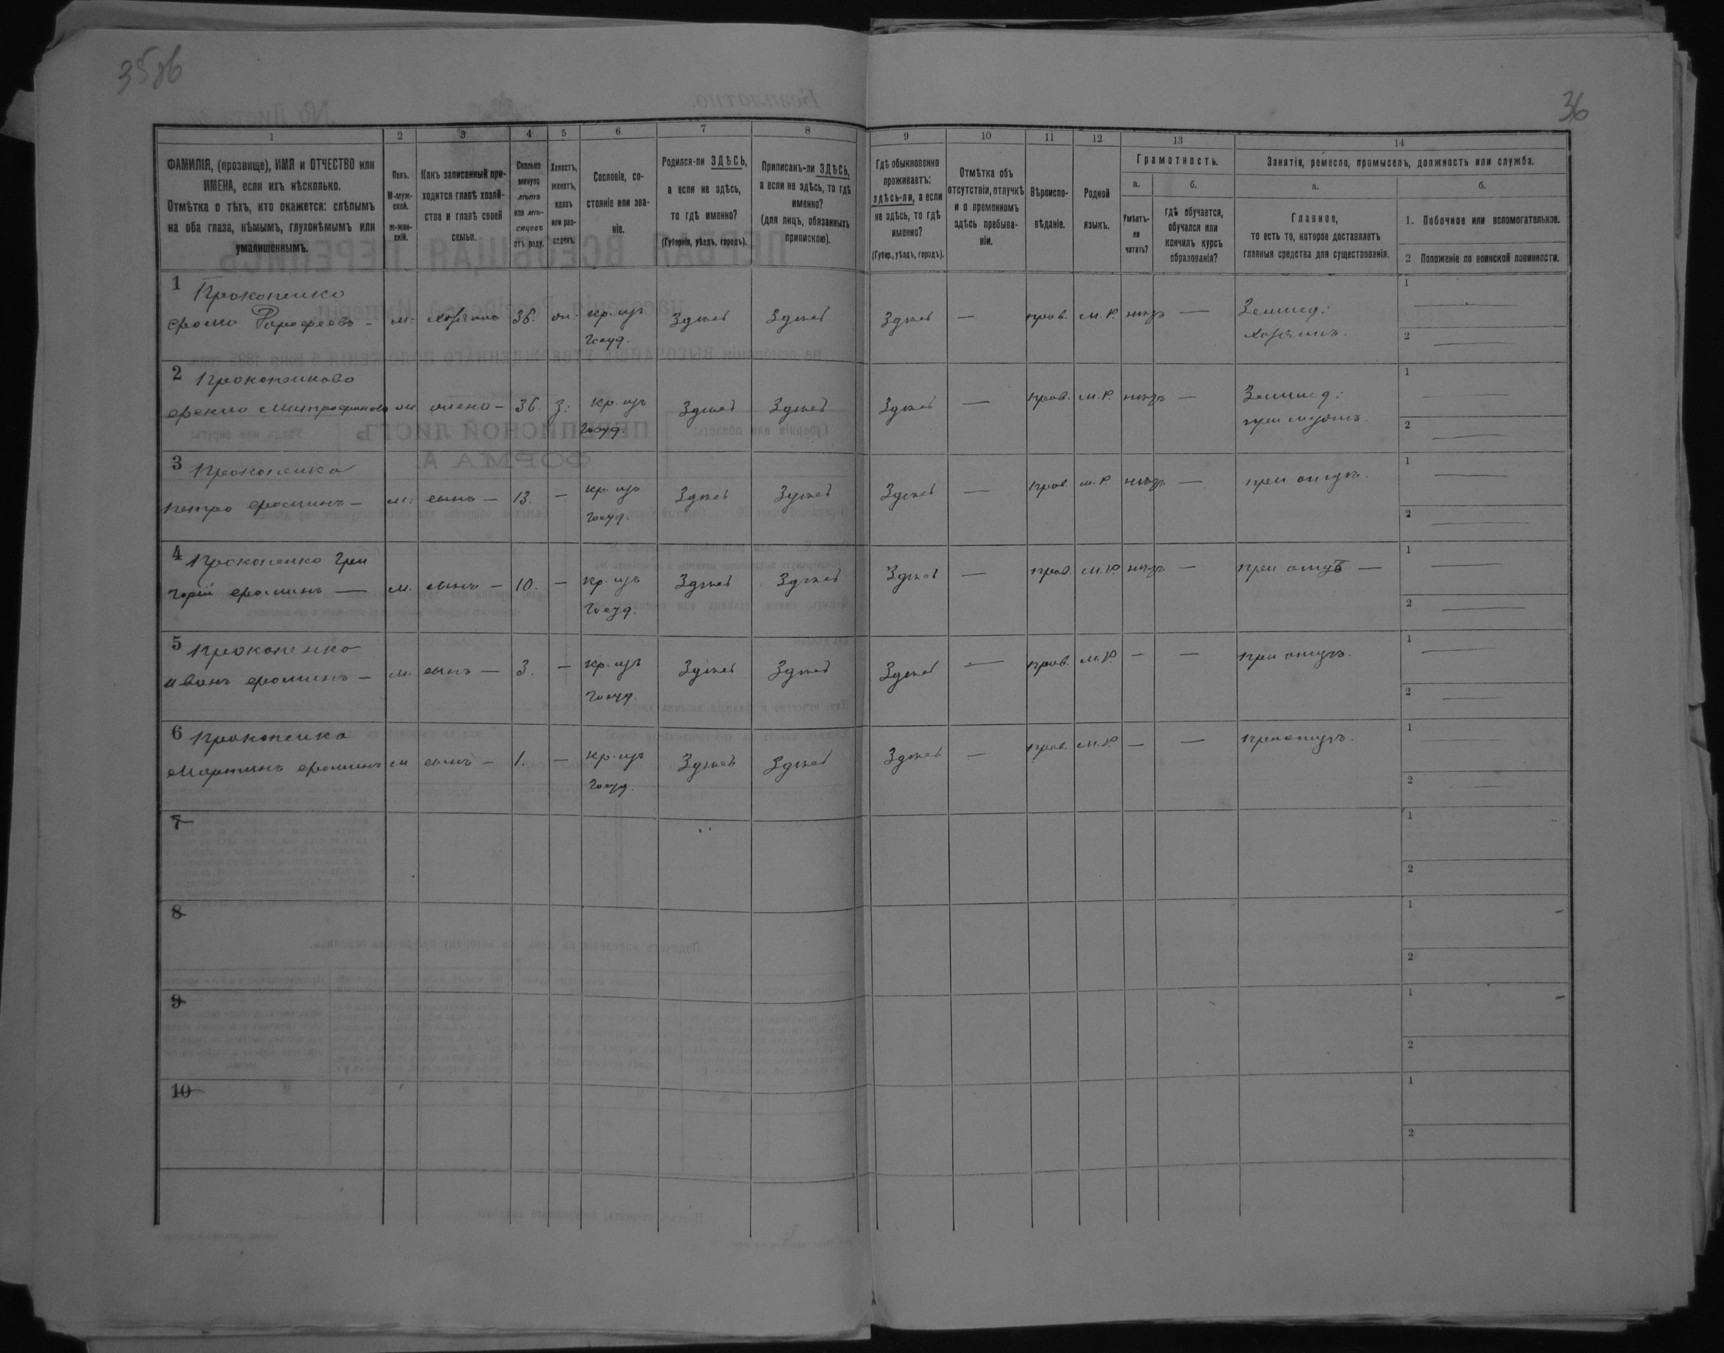 35об
36
1
2
3
4
5
6
7
8
9
10
11
12
13
14
ФАМИЛІЯ, (прозвище), ИМЯ и ОТЧЕСТВО или
ИМЕНА, если ихъ нѣсколько.
Отмѣтка о тѣхъ, кто окажется: слѣпымъ
на оба глаза, нѣмымъ, глухонѣмымъ или
умалишеннымъ.
Полъ.
М-муж-
ской.
ж-жен-
скій.
Какъ записанный при-
ходится главѣ хозяй-
ства и главѣ своей
семьи.
Сколько
минуло
лѣтъ
или мѣ-
сяцевъ
отъ роду.
Холостъ,
женатъ,
вдовъ
или раз-
веденъ.
Сословіе, со-
стояніе или зва-
ніе.
Родился-ли ЗДѢСЬ,
а если не здѣсь,
то гдѣ именно?
(Губернія, уѣздъ, городъ).
Приписанъ-ли ЗДѢСЬ,
а если не здѣсь, то гдѣ
именно?
(для лицъ, обязанныхъ
припискою).
Гдѣ обыкновенно
проживаетъ:
здѣсь-ли, а если
не здѣсь, то гдѣ
именно?
(Губер., уѣздъ, городъ).
Отмѣтка объ
отсутствіи, отлучкѣ
и о временномъ
здѣсь пребыва-
ніи.
Вѣроиспо-
вѣданіе.
Родной
языкъ.
Грамотность.
а.
Умѣетъ-
ли
читать?
б.
гдѣ обучается,
обучался или
кончилъ курсъ
образованія?
Занятія, ремесло, промыселъ, должность или служба.
а.
Главное,
то есть то, которое доставляетъ
главныя средства для существованія.
б.
1. Побочное или вспомогательное.
2 Положеніе по воинской повинности.
1 Прокопенко
м. хозяинъ 36. кр. изъ Здѣсь Здѣсь Здѣсь — прав. М.Р. — Землед.:
госуд. хозяинъ.
1 —
2 —
2
Митрофанова жена — 36. з. кр. изъ Здѣсь Здѣсь Здѣсь — прав. М.Р. — Землед.:
госуд. при мужѣ.
1 —
2 —
3 Прокопенко
Петро м. сынъ — 13. — кр. изъ Здѣсь Здѣсь Здѣсь — прав. М.Р. — при отцѣ.
госуд.
1 —
2 —
4 Прокопенко Гри
горій — м. сынъ — 10. — кр. изъ Здѣсь Здѣсь Здѣсь — прав. М.Р. — при отцѣ —
госуд.
1 —
2 —
5 Прокопенко
Иванъ — м. сынъ — 3. — кр. изъ Здѣсь Здѣсь Здѣсь — прав. М.Р. — — при отцѣ.
госуд.
1 —
2 —
6 Прокопенко
Мартинъ м сынъ — 1. — кр. изъ Здѣсь Здѣсь Здѣсь — прав. М.Р. — — при отцѣ.
госуд.
1 —
2 —
7
1
2
8
1
2
9
1
2
10
1
2